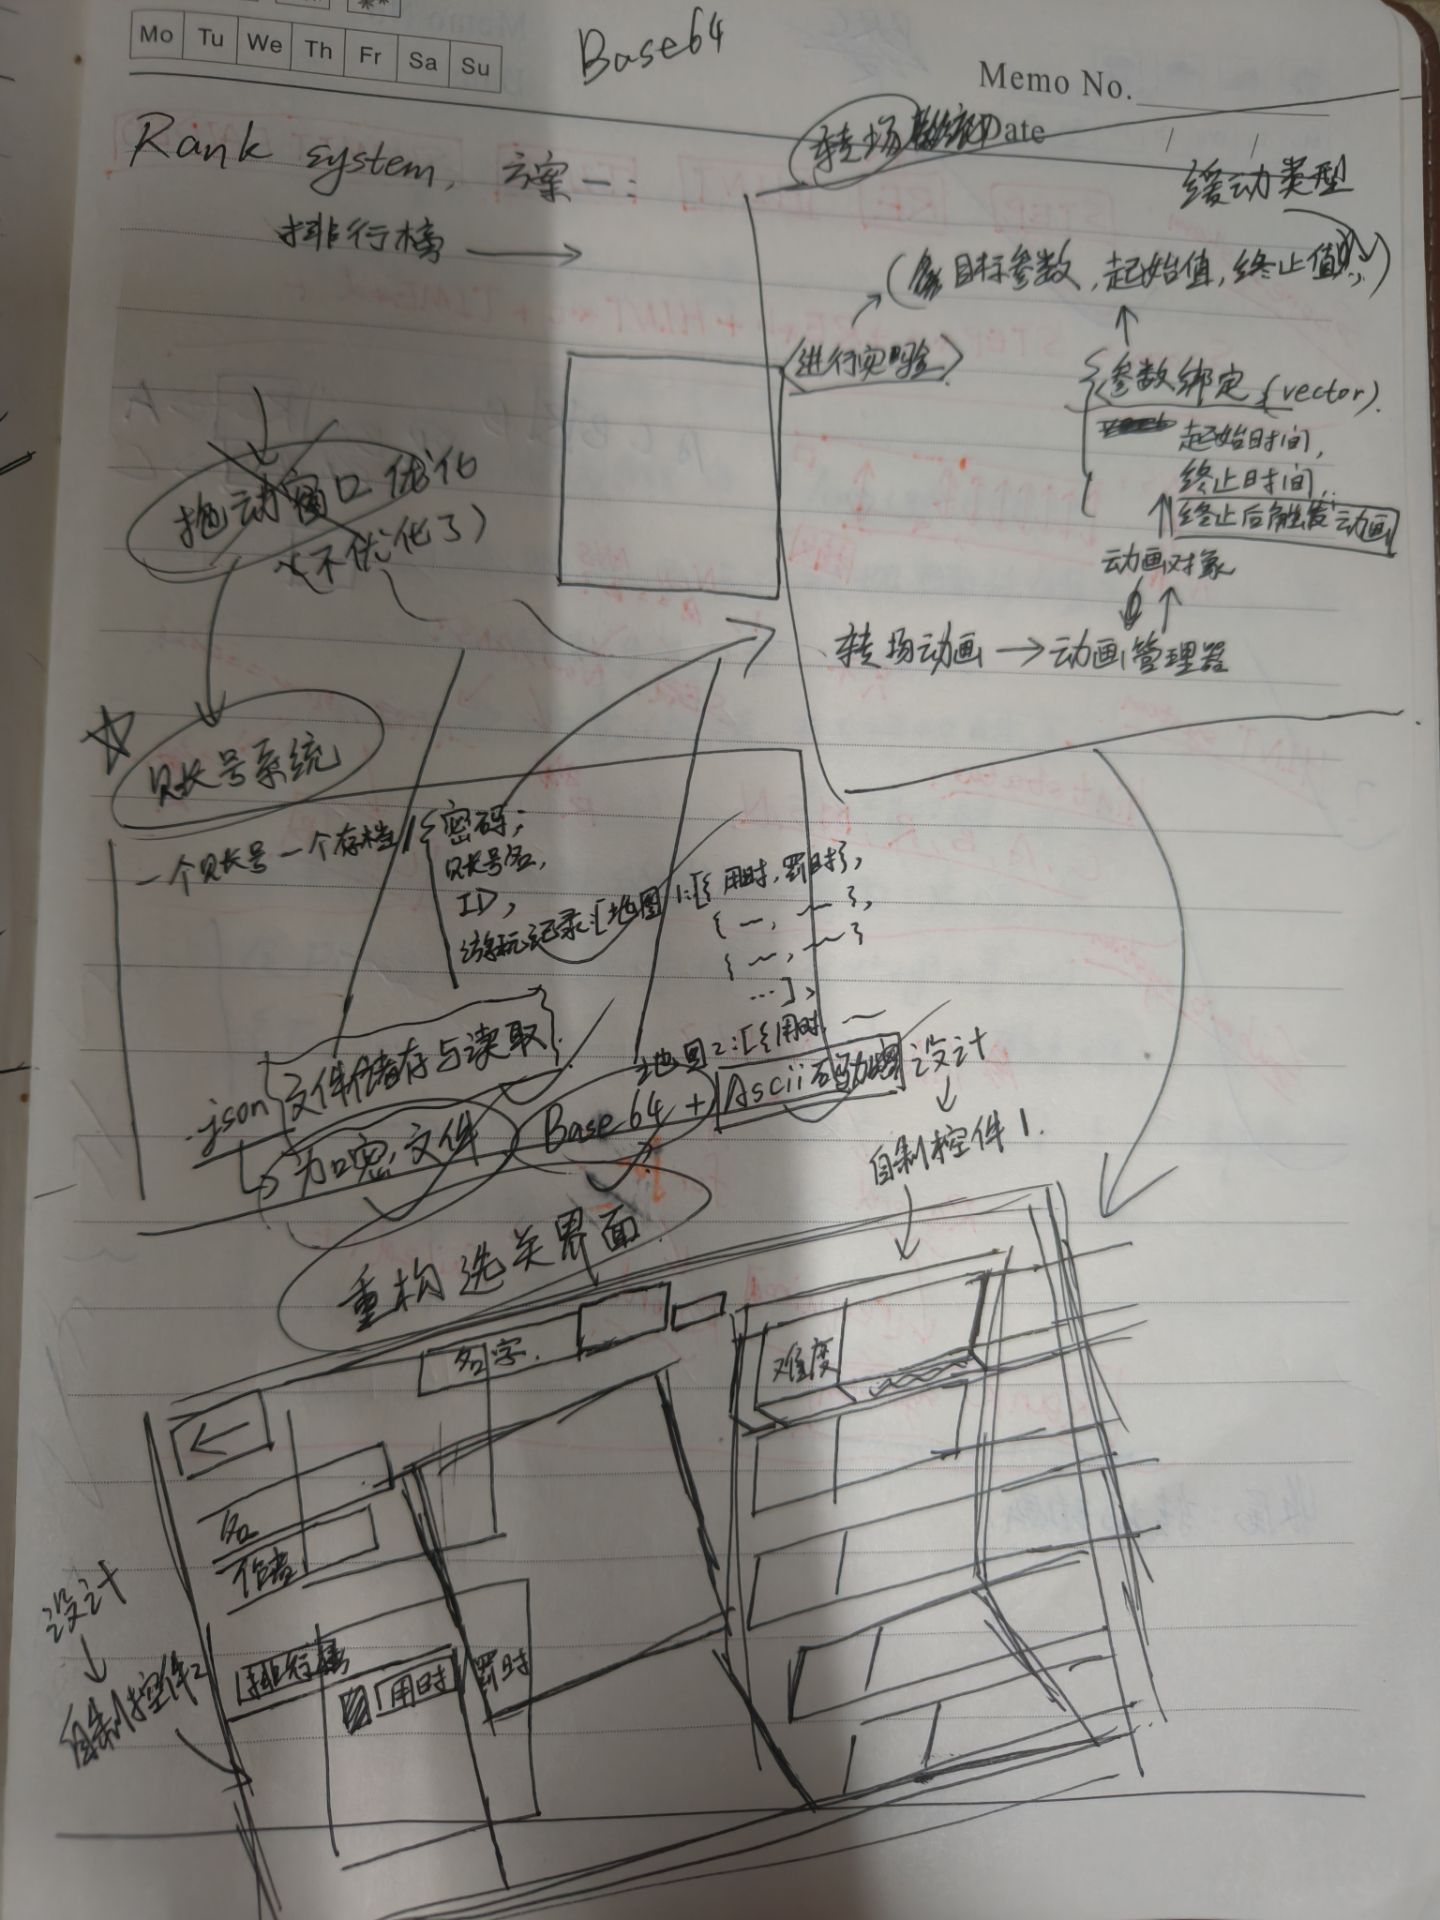 Mo Tu We Th Fr Sa Su
Base64
Memo No.
Date
Rank system, 方案一:
排行榜
转场
缓动类型
(目标参数, 起始值, 终止值, )
{进行实验}
{参数绑定 (vector).
起始时间,
终止时间,
终止后触发动画
动画对象
转场动画 → 动画管理器
拖动窗口优化
(不优化了)
☆
账号系统
一个账号一个存档
{密码;
账号名,
ID,
游玩记录:[地图1:[{用时, 罚时},
{~, ~},
{~, ~}
...],
地图2:[{用时, ~
.json {文件储存与读取}
加密文件
Base64 + Ascii码
设计
自制控件1.
重构选关界面
名字.
难度
←
名
作者
设计
自制控件2
排行榜
用时
罚时